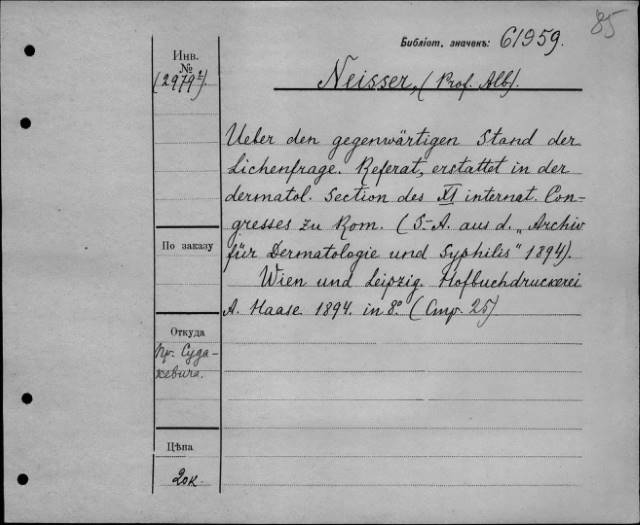 85
Библіот. значекъ: 61959.
Инв.
№
(2979²).
Neisser, (Prof. Alb).
Ueber den gegenwärtigen Stand der
Lichenfrage. Referat, erstattet in der
dermatol. Section des XI internat. Con-
gresses zu Rom. (S.-A. aus d. „Archiv
für Dermatologie und Syphilis" 1894).
Wien und Leipzig. Hofbuchdruckerei
A. Haase. 1894. in 8º. (Стр. 25)
По заказу
Откуда
Пр. Суда-
кевича.
Цѣна
20к.